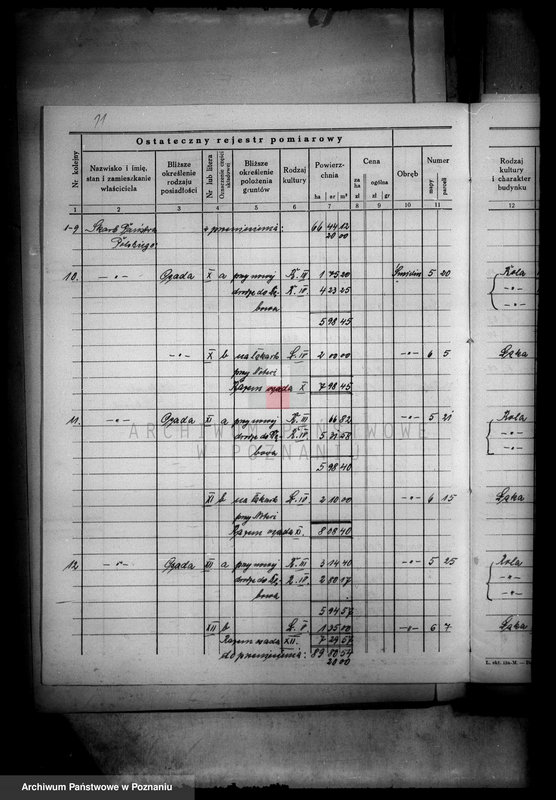 11
Ostateczny rejestr pomiarowy
Nr. kolejny
Nazwisko i imię, stan i zamieszkanie właściciela
Bliższe określenie rodzaju posiadłości
Nr lub litera
Oznaczenie części składowej
Bliższe określenie położenia gruntów
Rodzaj kultury
Powierzchnia
ha ar m²
Cena
za ha
zł
ogólna
zł gr
Obręb
Numer
mapy
parceli
Rodzaj kultury i charakter budynku
1 2 3 4 5 6 7 8 9 10 11 12
1-9 Skarb Państwa z przeniesienia: 66 44 12
Polskiego 20 00
10. -"- Osada X a przy nowej K. III 1 75 20 5 20 Rola
drodze do K. IV 4 23 25 -"-
bowa -"-
5 98 45
-"- X b na łąkach Ł. IV 2 00 00 -"- 6 5 Łąka
przy
Razem osada X 7 98 45
11. -"- Osada XI a przy nowej K. III 66 82 -"- 5 21 Rola
drodze do K. IV 5 31 58 -"-
bowa -"-
5 98 40
XI b na łąkach Ł. IV 2 10 00 -"- 6 15 Łąka
przy
Razem osada XI. 8 08 40
12. -"- Osada XII a przy nowej K. III 3 14 40 -"- 5 25 Rola
drodze do 2 80 17 -"-
bowa -"-
5 94 57
XII b Ł. V 1 35 00 -"- 6 7 Łąka
Razem osada XII. 7 29 57
do przeniesienia: 89 80 54
20 00
ARCHIWUM PAŃSTWOWE
W POZNANIU
Archiwum Państwowe w Poznaniu
szukajwarchiwach.gov.pl